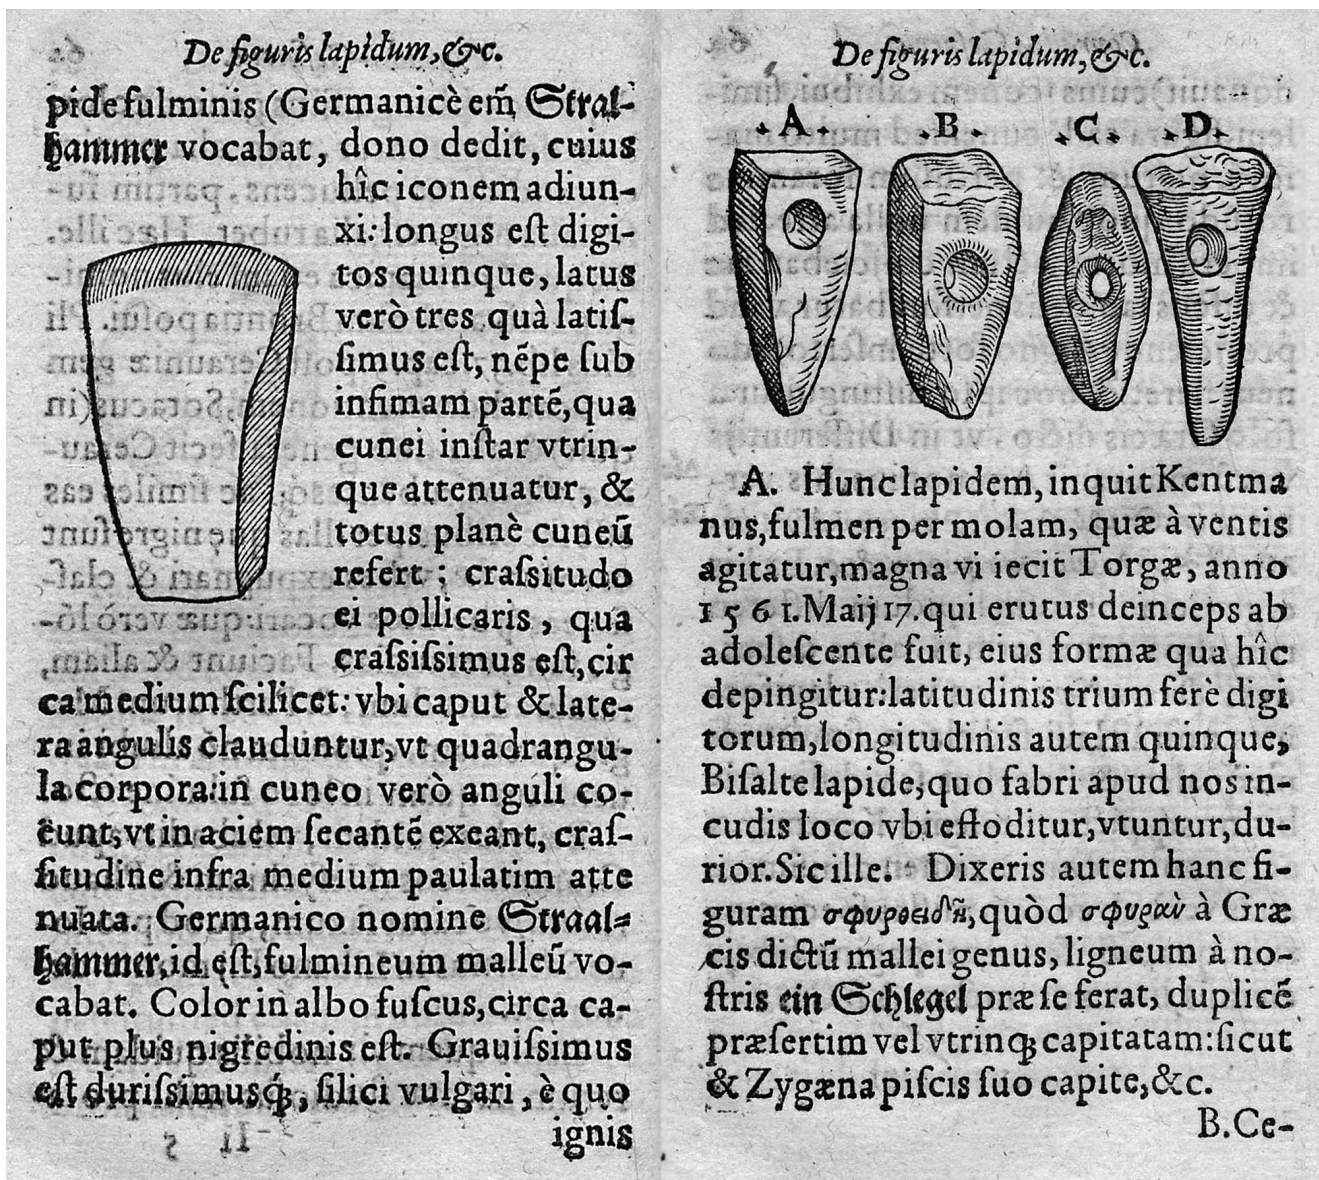 De figuris lapidum, &c.
pide fulminis (Germanicè em̃ Stral-
hammer vocabat, dono dedit, cuius
hîc iconem adiun-
xi: longus eſt digi-
tos quinque, latus
verò tres quà latiſ-
ſimus eſt, nẽpe ſub
infimam partẽ, qua
cunei inſtar vtrin-
que attenuatur, &
totus planè cuneũ
refert ; craſsitudo
ei pollicaris, qua
craſsiſsimus eſt, cir
ca medium ſcilicet: vbi caput & late-
ra angulis clauduntur, vt quadrangu-
la corpora: in cuneo verò anguli co-
ëunt, vt in aciem ſecantẽ exeant, craſ-
ſitudine infra medium paulatim atte
nuata. Germanico nomine Straal-
hammer, id eſt, fulmineum malleũ vo-
cabat. Color in albo fuſcus, circa ca-
put plus nigredinis eſt. Grauiſsimus
eſt duriſsimusq́;, ſilici vulgari, è quo
ignis
De figuris lapidum, &c.
A. B. C. D.
A. Hunc lapidem, inquit Kentma
nus, fulmen per molam, quæ à ventis
agitatur, magna vi iecit Torgæ, anno
1561. Maij 17. qui erutus deinceps ab
adoleſcente fuit, eius formæ qua hîc
depingitur: latitudinis trium ferè digi
torum, longitudinis autem quinque,
Biſalte lapide, quo fabri apud nos in-
cudis loco vbi effoditur, vtuntur, du-
rior. Sic ille. Dixeris autem hanc fi-
guram σφυροειδῆ, quòd σφυραὺ à Græ
cis dictũ mallei genus, ligneum à no-
ſtris ein Schlegel præ ſe ferat, duplicẽ
præſertim vel vtrinq; capitatam: ſicut
& Zygæna piſcis ſuo capite, &c.
B. Ce-